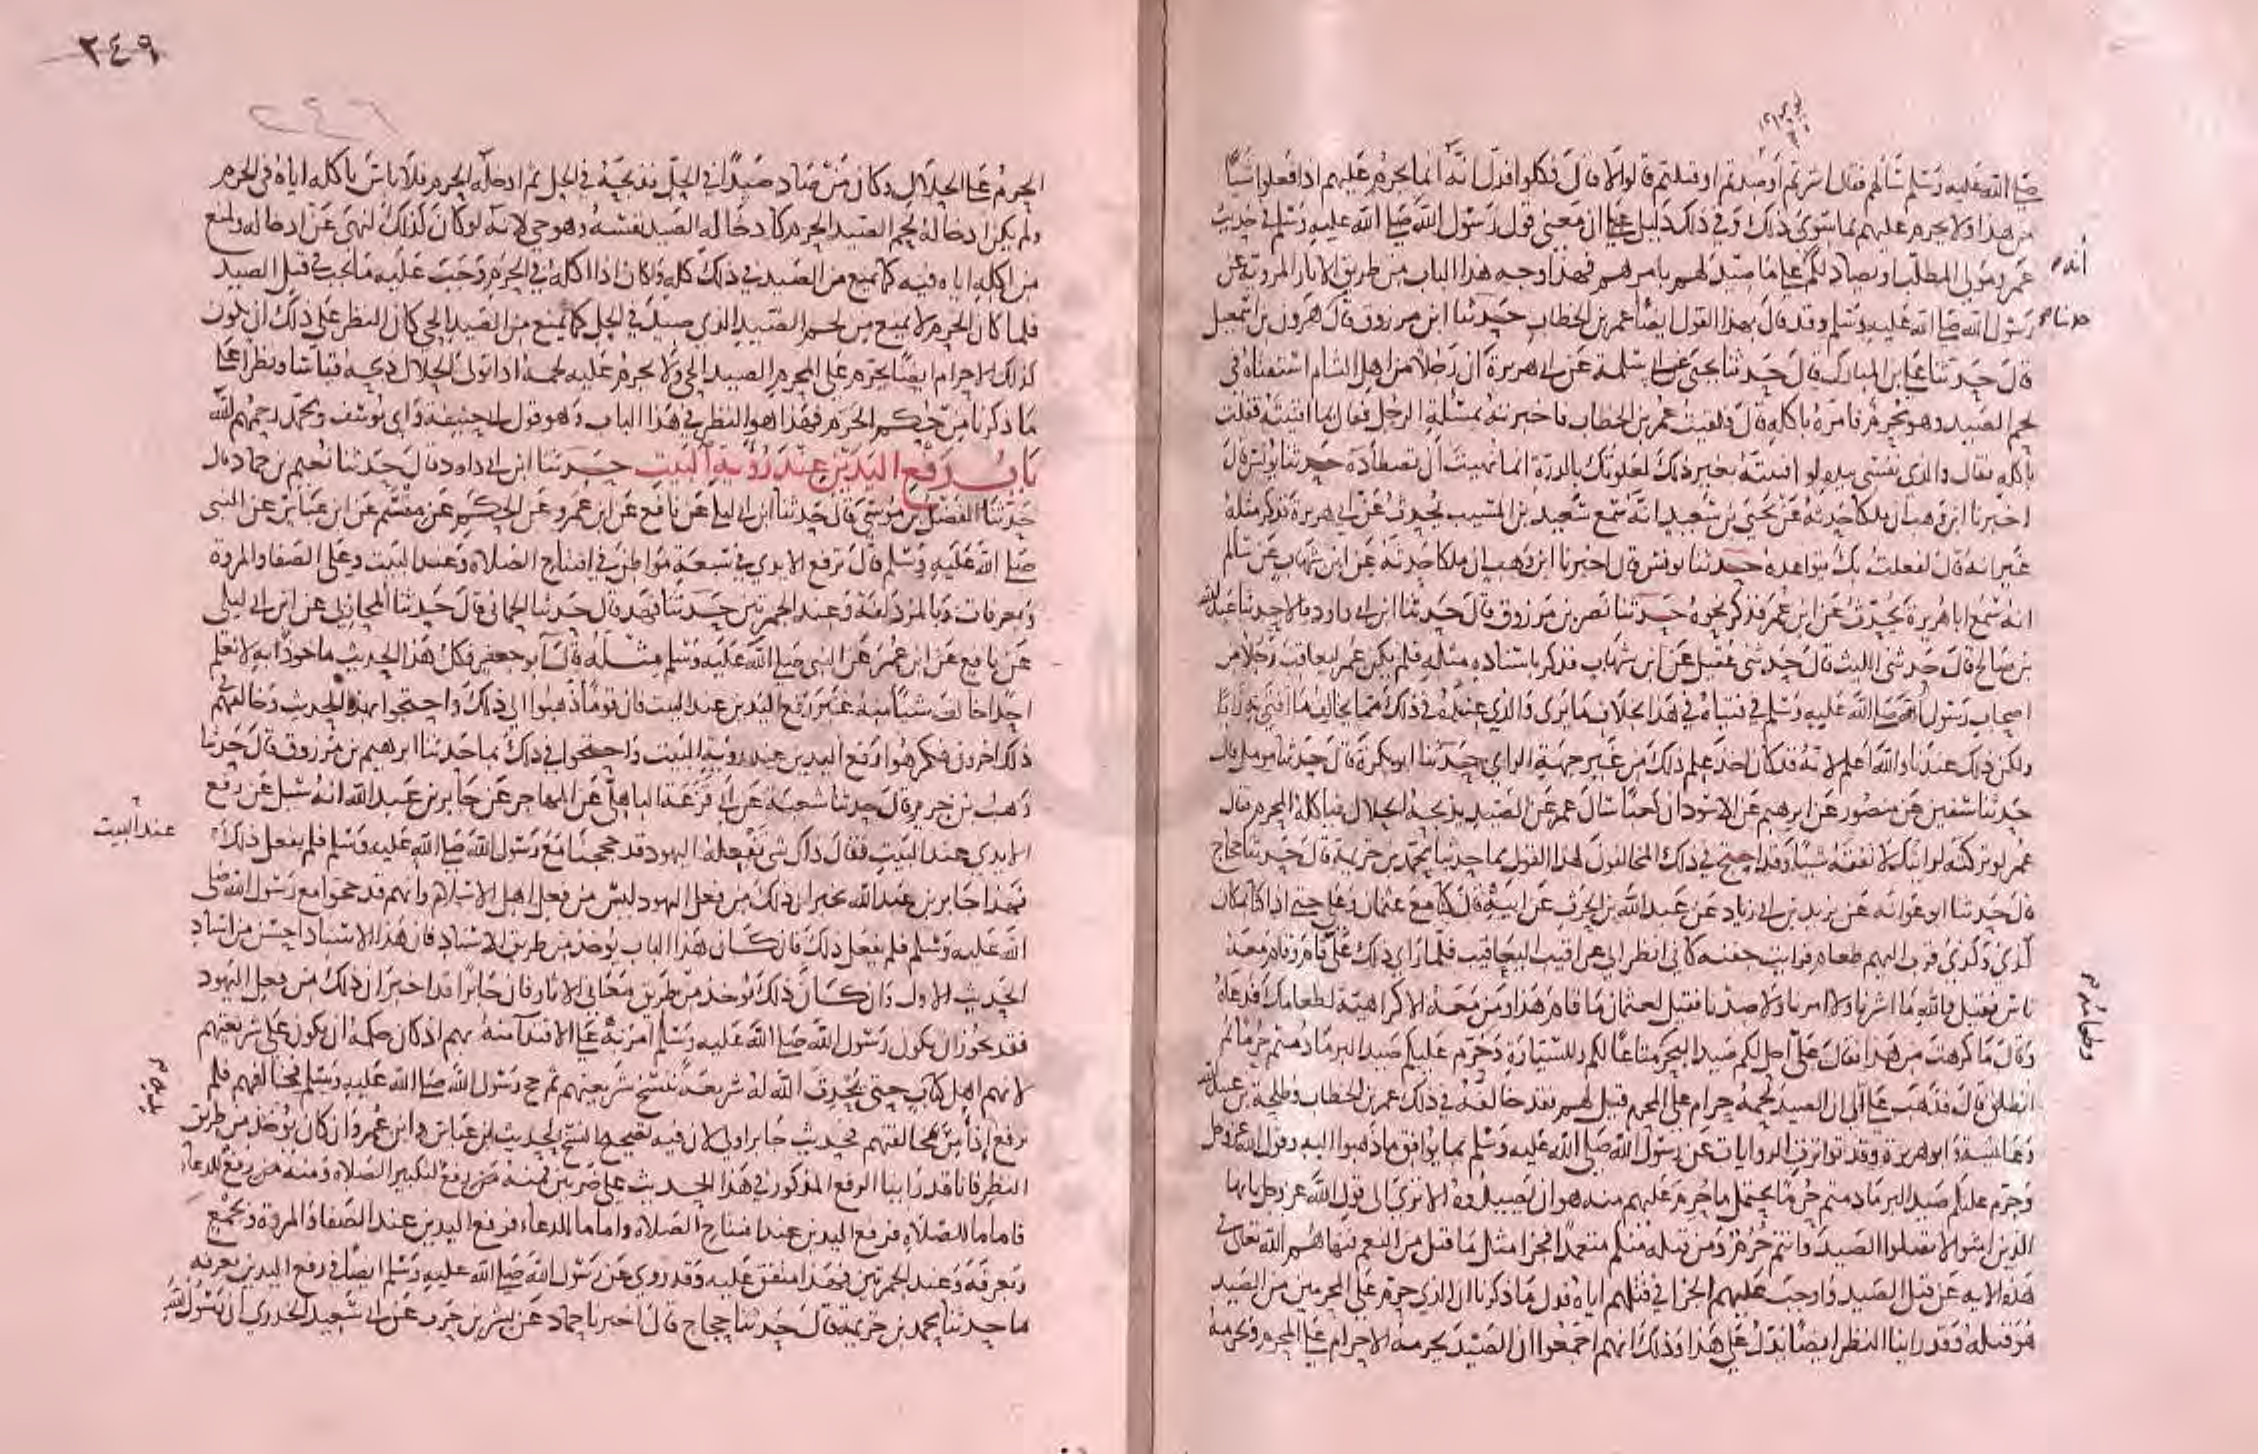 صلى الله عليه وسلم سألهم فقال اشرتم او صدتم او قتلتم قالوا لا قال فكلوا فدل انه انما يحرم عليهم اذا فعلوا شيئا
من هذا ولا يحرم عليهم بما سوى ذلك وفي ذلك دليل على ان معنى قول رسول الله صلى الله عليه وسلم في حديث
عمرو مولى المطلب او يصاد لكم على ما صيد لهم بامرهم فهذا وجه هذا الباب من طريق الاثار المروية عن
رسول الله صلى الله عليه وسلم وقد قال بهذا القول ايضا عمر بن الخطاب حدثنا ابن مرزوق قال هرون بن اسمعيل
قال حدثنا علي بن المبارك قال حدثنا يحيى عن ابي سلمة عن ابي هريرة ان رجلا من اهل الشام استفتاه في
لحم الصيد وهو محرم فامره باكله قال ولقيت عمر بن الخطاب فاخبرته بمسئلة الرجل فقال بما افتيته فقلت
باكله فقال والذي نفسي بيده لو افتيته بغير ذلك لعلوتك بالدرة انما نهيت ان تصطاده حدثنا يونس قال
اخبرنا ابن وهب ان ملكا حدثه عن يحيى بن سعيد انه سمع سعيد بن المسيب يحدث عن ابي هريرة فذكر مثله
غير انه قال لفعلت بك يتواعده حدثنا يونس قال اخبرنا ابن وهب ان ملكا حدثه عن ابن شهاب عن سالم
انه سمع ابا هريرة يحدث عن ابن عمر فذكر نحوه حدثنا نصر بن مرزوق قال حدثنا ابن ابي داود قالا حدثنا عبد الله
بن صالح قال حدثني الليث قال حدثني عقيل عن ابن شهاب فذكر باسناده مثله فلم يكن عمر ليعاقب رجلا من
اصحاب رسول الله صلى الله عليه وسلم في فتياه في هذا بخلاف ما يرى والذي عنده في ذلك مما يخالف ما افتى به رايا
ولكن ذلك عندنا والله اعلم لانه قد كان اخذ علم ذلك من غير جهة الراي حدثنا ابو بكرة قال حدثنا مومل قال
حدثنا سفين عن منصور عن ابرهيم عن الاسود ان كعبا سال عمر عن الصيد يذبحه الحلال فياكله المحرم فقال
عمر لو تركته لرايتك لا تفقه شيئا وقد احتج في ذلك المخالفون لهذا القول بما حدثنا محمد بن خزيمة قال حدثنا حجاج
قال حدثنا ابو عوانة عن يزيد بن ابي زياد عن عبد الله بن الحرث عن ابيه قال كنا مع عثمان وعلي حتى اذا كنا بمكان
كذي وكذي قرب اليهم طعام فرايت جفنه كاني انظر الى عراقيب اليعاقيب فلما راى ذلك علي قام وقام معه
ناس فقيل والله ما اشرنا ولا امرنا ولا صدنا فقيل لعثمان ما قام هذا ومن معه الا كراهية لطعامك فدعاه
وقال ما كرهت من هذا فقال علي احل لكم صيد البحر متاعا لكم وللسيارة وحرم عليكم صيد البر ما دمتم حرما ثم
انطلق قال فذهب علي الى ان الصيد لحمه حرام على المحرم قيل لهم فقد خالفه في ذلك عمر بن الخطاب وطلحة بن عبيد الله
وعائشة وابو هريرة وقد تواترت الروايات عن رسول الله صلى الله عليه وسلم بما يوافق ما ذهبوا اليه وقول الله عز وجل
وحرم عليكم صيد البر ما دمتم حرما يحتمل ما حرم عليهم منه هو ان يصيدوه الا ترى الى قول الله عز وجل يا ايها
الذين امنوا لا تقتلوا الصيد وانتم حرم ومن قتله منكم متعمدا فجزا مثل ما قتل من النعم فنهاهم الله تعالى في
هذه الاية عن قتل الصيد واوجب عليهم الجزا في قتلهم اياه فدل ما ذكرنا ان الذي حرم على المحرمين من الصيد
هو قتله وقد راينا النظر ايضا يدل على هذا وذلك انهم اجمعوا ان الصيد يحرمه الاحرام على المحرم ويحرمه
انه
حدثنا
وطعامه
٢٤٩
٢٤٦
الحرم على الحلال وكان من صاد صيدا في الحل فذبحه في الحل ثم ادخله الحرم فلا باس باكله اياه في الحرم
ولم يكن ادخاله لحم الصيد الحرم كادخاله الصيد نفسه وهو حي لانه لو كان كذلك لنهى عن ادخاله ولمنع
من اكله اياه فيه كما يمنع من الصيد في ذلك كله ولكان اذا اكله في الحرم وجب عليه ما يجب في قتل الصيد
فلما كان الحرم لا يمنع من لحم الصيد الذي صيد في الحل كما يمنع من الصيد الحي كان النظر على ذلك ان يكون
كذلك الاحرام ايضا يحرم على المحرم الصيد الحي ولا يحرم عليه لحمه اذا تولى الحلال ذبحه قياسا ونظرا على
ما ذكرنا من حكم الحرم فهذا هو النظر في هذا الباب وهو قول ابي حنيفة وابي يوسف ومحمد رحمهم الله
باب رفع اليدين عند رؤية البيت حدثنا ابن ابي داود قال حدثنا نعيم بن حماد قال
حدثنا الفضل بن موسى قال حدثنا ابن ابي ليلى عن نافع عن ابن عمر وعن الحكم عن مقسم عن ابن عباس عن النبي
صلى الله عليه وسلم قال ترفع الايدي في سبعة مواطن في افتتاح الصلاة وعند البيت وعلى الصفا والمروة
وبعرفات وبالمزدلفة وعند الجمرتين حدثنا فهد قال حدثنا الحماني قال حدثنا المحاربي عن ابن ابي ليلى
عن نافع عن ابن عمر عن النبي صلى الله عليه وسلم مثله قال ابو جعفر فكان هذا الحديث ماخوذا به لا نعلم
احدا خالف شيئا منه غير رفع اليدين عند البيت فان قوما ذهبوا الى ذلك واحتجوا بهذا الحديث وخالفهم في
ذلك اخرون فكرهوا رفع اليدين عند رؤية البيت واحتجوا في ذلك بما حدثنا ابرهيم بن مرزوق قال حدثنا
وهب بن جرير قال حدثنا شعبة عن ابي قزعة الباهلي عن المهاجر عن جابر بن عبد الله انه سئل عن رفع
الايدي عند البيت فقال ذاك شي تفعله اليهود قد حججنا مع رسول الله صلى الله عليه وسلم فلم يفعل ذلك
فهذا جابر بن عبد الله يخبر ان ذلك من فعل اليهود ليس من فعل اهل الاسلام وانهم قد حجوا مع رسول الله صلى
الله عليه وسلم فلم يفعل ذلك فان كان هذا الباب يوخذ من طريق الاسناد فان هذا الاسناد احسن من اسناد
الحديث الاول وان كان ذلك يوخذ من طريق معاني الاثار فان جابرا قد اخبر ان ذلك من فعل اليهود
فقد يجوز ان يكون رسول الله صلى الله عليه وسلم امر به على الاقتدا منه بهم اذ كان حكمه ان يكون على شريعتهم
لانهم اهل كتاب حتى يحدث الله له شريعة تنسخ شريعتهم ثم حج رسول الله صلى الله عليه وسلم فخالفهم فلم
يرفع اذا من مخالفتهم فحديث جابر اولى لان فيه تصحيح النسخ لحديث ابن عباس وابن عمر وان كان يوخذ من طريق
النظر فانا قد راينا الرفع المذكور في هذا الحديث على ضربين فمنه رفع لتكبير الصلاة ومنه رفع للدعا
فاما ما للصلاة فرفع اليدين عند افتتاح الصلاة واما ما للدعاء فرفع اليدين عند الصفا والمروة وبجمع
وبعرفة وعند الجمرتين فهذا متفق عليه وقد روي عن رسول الله صلى الله عليه وسلم ايضا في رفع اليدين بعرفة
ما حدثنا محمد بن خزيمة قال حدثنا حجاج قال اخبرنا حماد عن بشر بن حرب عن ابي سعيد الخدري ان رسول الله
عند البيت